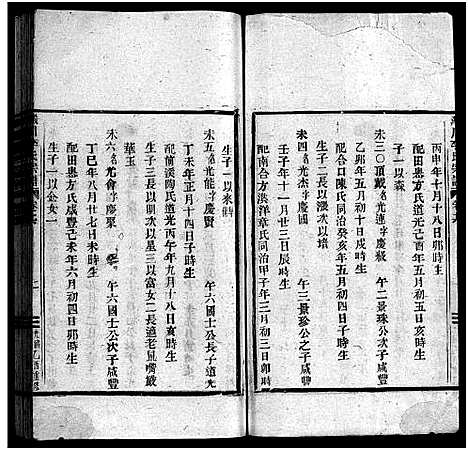 丙申年十月十八日卯時生
配田墺方氏道光己酉年五月初五日亥時生
生子一以森
未三〇頂戴字慶級 午二景珠公次子咸豐
乙卯年五月初十日戌時生
配合口陳氏同治癸亥年五月初四日子時生
生子二長以漢次以
未四名光杰字慶國 午三景珍公之子咸豐
庚申年十一月廿三日辰時生
配南合方漢洋章氏同治甲子年二月初三日卯時
生子一以來
未五名光能字慶賢 午六國士公長子道光
丁未年正月十四日子時生
配前溪陶氏道光丙午年九月十八日亥時生
生子二長以明次以星三以富女二長適老鼠嘴嚴
華玉
未六名光會字慶粟 午六國士公次子咸豐
丁巳年八月廿七日未時生
配田墺方氏咸豐己未年六月初四日卯時生
生子一以公女一